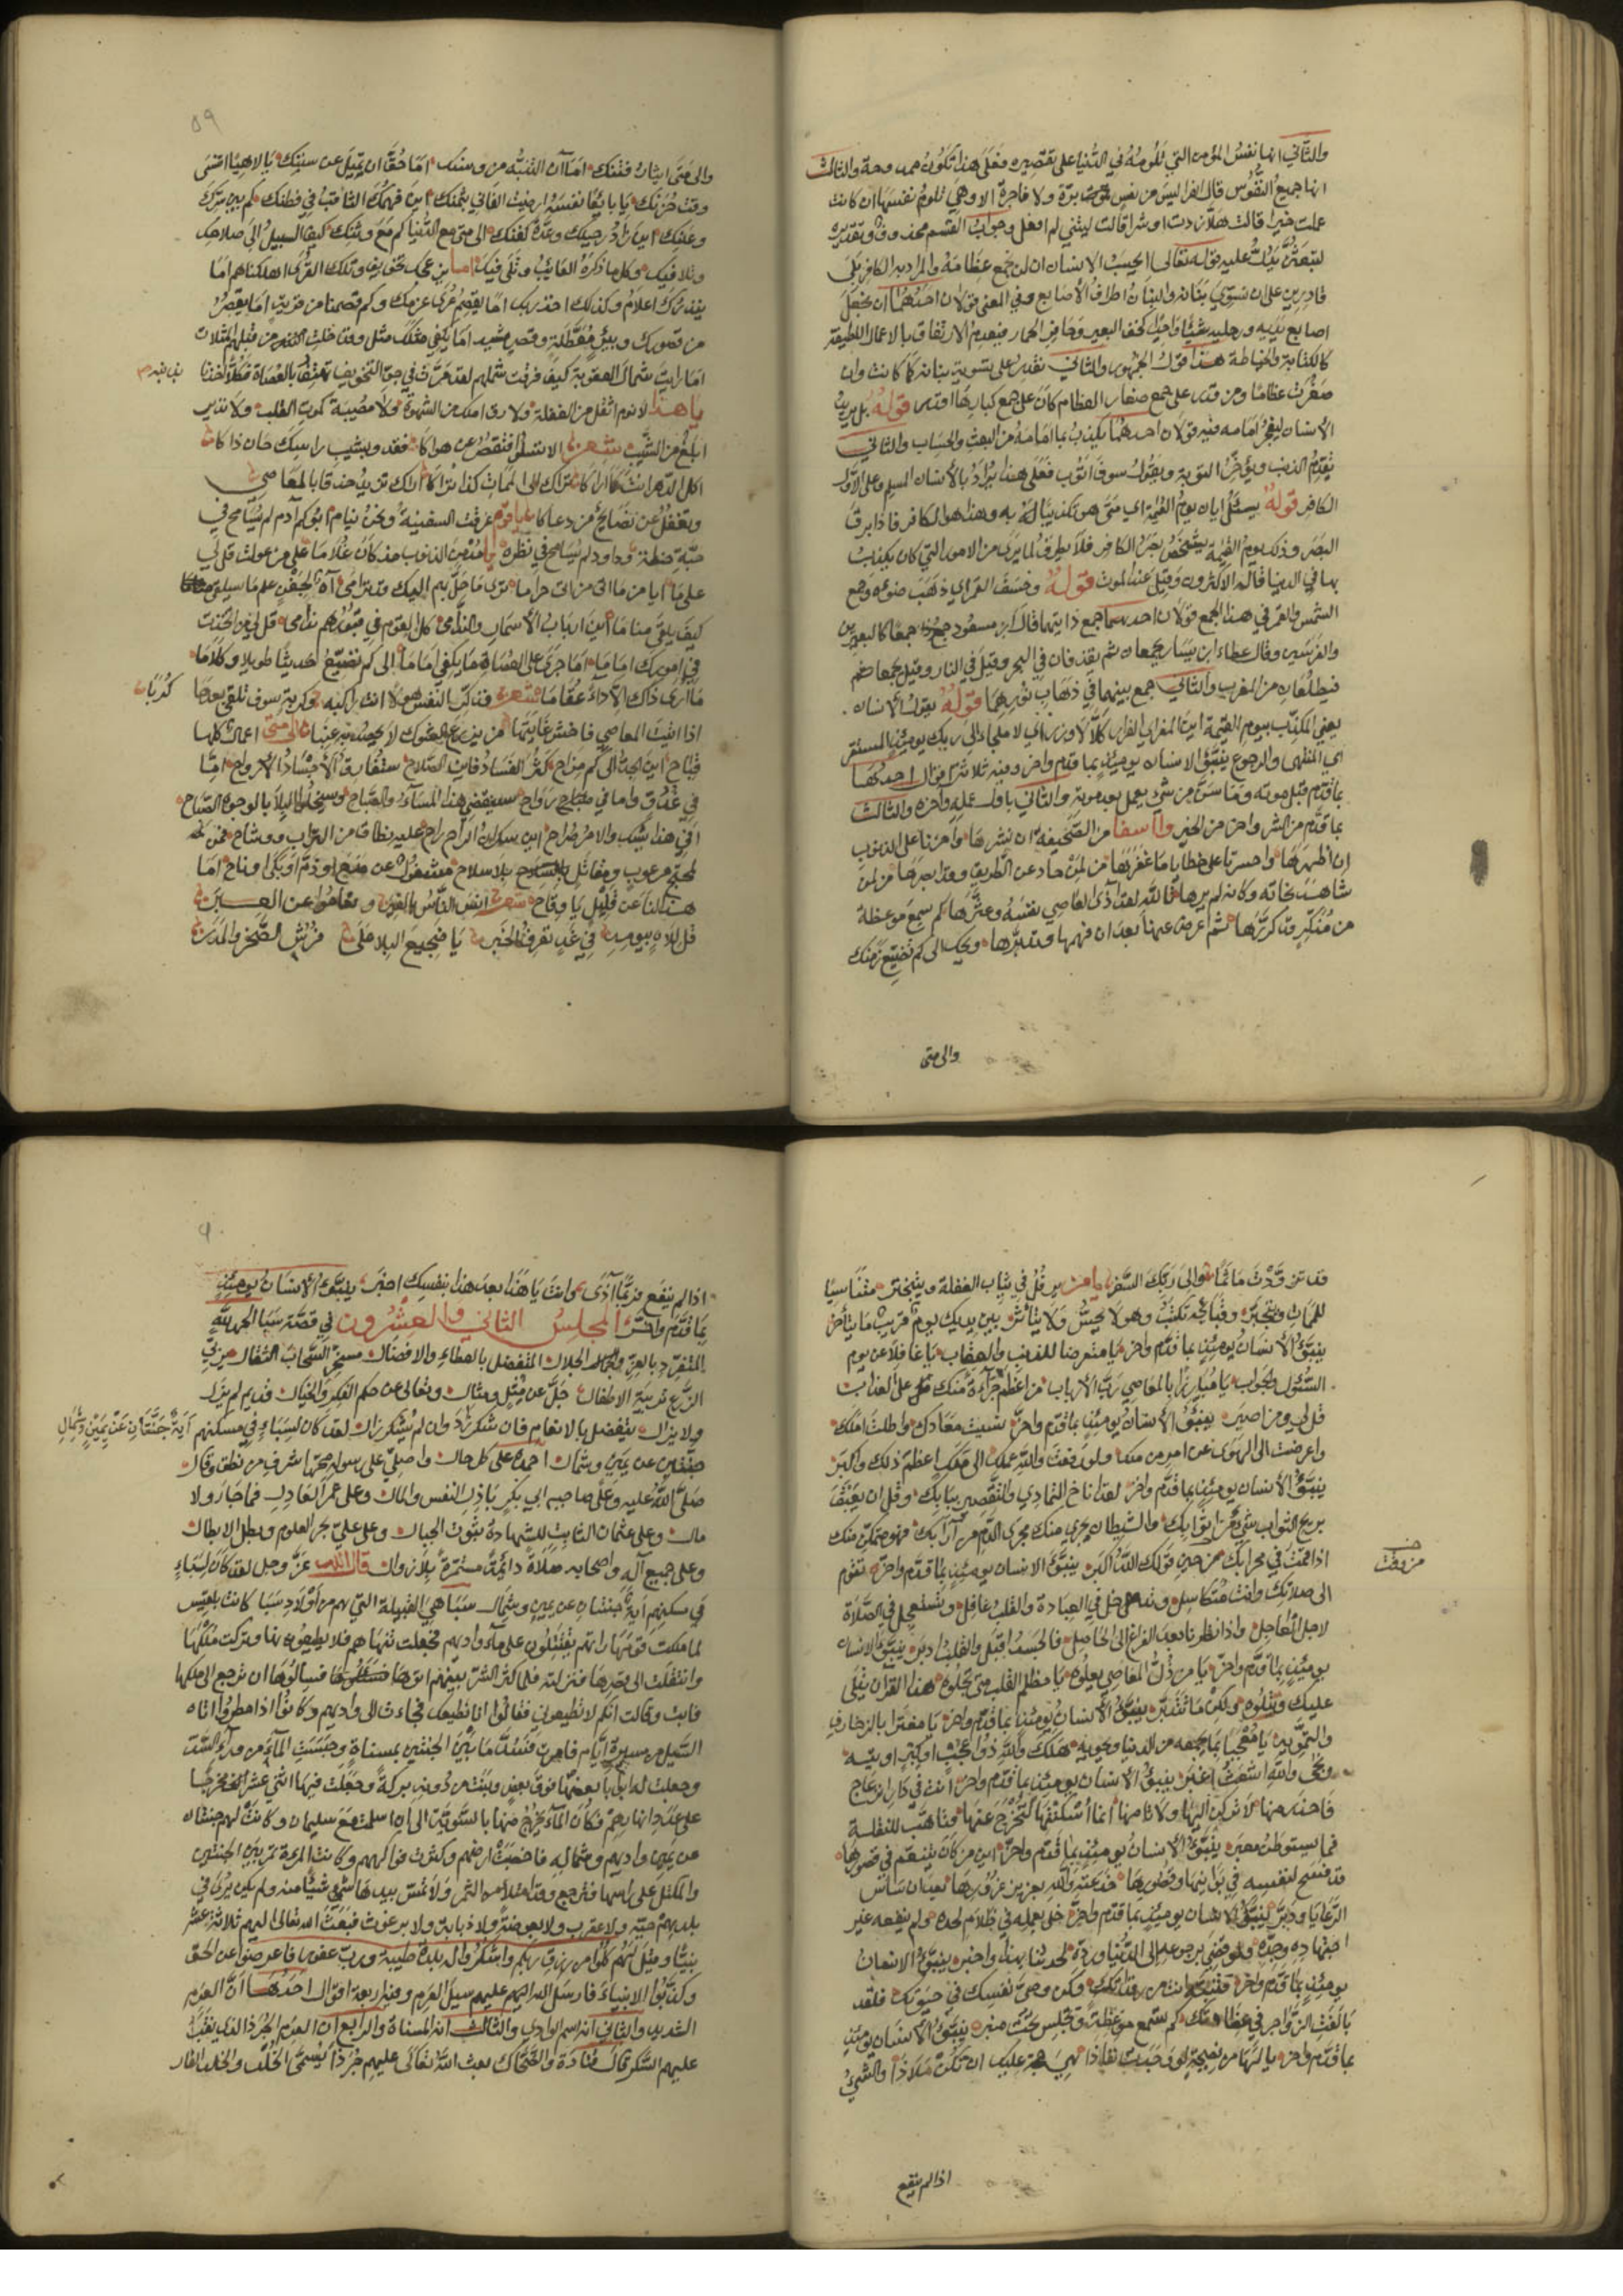 والثاني انها نفس المؤمن التي تلومه في الدنيا على تقصيره فعلى هذا تكون ممدوحة والثالث
انها جميع النفوس قال الفرا ليس من نفس برة ولا فاجرة الا وهي تلوم نفسها ان كانت
عملت خيرا قالت هلا زدت او شرا قالت ليتني لم افعل وجواب القسم محذوف تقديره
لتبعثن يدل عليه قوله تعالى ايحسب الانسان ان لن نجمع عظامه والمراد به الكافر بلى
قادرين على ان نسوي بنانه والبنان اطراف الاصابع وفي المعنى قولان احدهما ان نجعل
اصابع يديه ورجليه شيئا واحدا كخف البعير وحافر الحمار فيعدم الارتفاق بالاعمال اللطيفة
كالكتابة والخياطة هذا قول الجمهور والثاني نقدر على تسوية بنانه كما كانت وان
صغرت عظامها ومن قدر على جمع صغار العظام كان على جمع كبارها اقدر قوله بل يريد
الانسان ليفجر امامه فيه قولان احدهما يكذب بما امامه من البعث والحساب والثاني
يقدم الذنب ويؤخر التوبة ويقول سوف اتوب فعلى هذا يراد بالانسان المسلم وعلى الاول
الكافر قوله يسئل ايان يوم القيمة اي متى هو تكذيبا له به وهذا هو الكافر فاذا برق
البصر وذلك يوم القيمة يشخص بصر الكافر فلا يطرف لما يرى من الامور التي كان يكذب
بها في الدنيا قاله الاكثرون وقيل عند الموت قوله وخسف القمر اي ذهب ضوئه وجمع
الشمس والقمر في هذا الجمع قولان احدهما جمع ذاتيهما قال ابن مسعود جمعا كالبعيرين
والفرسين وقال عطاء ابن يسار يجمعان ثم يقذفان في البحر وقيل في النار وقيل يجمعا
فيطلعان من المغرب والثاني جمع بينهما في ذهاب نورهما قوله يقول الانسان
يعني المكذب بيوم القيمة اين المفر اي الفرار كلا لا وزر اي لا ملجاء الى ربك يومئذ المستقر
اي المنتهى والرجوع ينبؤ الانسان يومئذ بما قدم واخر وفيه ثلاثة اقوال احدها
بما قدم قبل موته وما سن من شيء يعمل بعد موته والثاني باول عمله وآخره والثالث
بما قدم من الشر واخر من الخير وااسفا من الصحيفة ان نشرها واحزنا على الذنوب
ان اظهرها واحسرتا على خطايا ما غفرها من لمن حاد عن الطريق وقد ابصرها من لمن
شاهد نجاته وكانه لم يرها تالله لقد آذى العاصي نفسه وعثرها كم سمع موعظة
من مذكر قد كررها ثم اعرض عنها بعد ان فهمها وتدبرها ويحك الى كم تضيع زمنك
والى متى
٥٩
والى متى ايثارك فتنك اما آن التنبه من وسنك اما حقا ان تميل عن سننك يا لاهيا انسى
وقت حزنك يا بايعا نفسه ارضيت الفاني بثمنك اين فهمك الثاقب في فطنك كم بين سرك
وعلنك اين زاد رحيلك وعدة كفنك الى متى مع الدنيا كم مع وثنك كيف السبيل الى صلاحك
وتلافيك وكل ما ذكره العائب وتلفى فيك اما بين تخويف وتلك القرى اهلكناهم اما
ينذرك اعلام وكذلك اخذ ربك اما يقصم عرى عزمك وكم قصمنا من قرية اما يقصر
من قصورك وبئر معطلة وقصر مشيد اما يكفي مثلك مثل وقد خلت النذر من قبلهم المثلات
اما رايت شمال العقوبة كيف فرقت شملهم لقد مرت في التخويف تهتف بالعصاة فكلا اخذنا
بذنبه
يا هذا لا نوم اثقل من الغفلة ولا رق املك من الشهوة ولا مصيبة كموت القلب ولا نذير
ابلغ من الشيب شعر الا فتقصر عن هواكا فقد وبشيب راسك حان ذاكا
اكل الدهر انت كما اراكا تراك الى الممات كذا تراكا اراك تزيد حذقا بالمعاصي
وتغفل عن نصائح من دعاكا يا قوم غرقت السفينة ونحن نيام ابوكم آدم لم يسامح في
حبة حنطة وداود لم يسامح في نظرة يا مدمن الذنوب مذ كان غلاما على من عولت قل لي
كيف يلقى مناما اين ارباب الاسمار والندامى كل القوم في قبورهم ندامى قل لي من اتخذت
في امورك اماما اما جرى على العصاة ما يكفي اماما الى كم تضيع حديثا طويلا وكلاما
ما ارى ذاك الا داء عقاما شعر كرب النفس هولا انت راكبه وكربة سوف تلقى بعدها
كربات
اذا اتيت المعاصي فاخش غايتها من يزرع الشوك لا يحصد به عنبا الى متى اعمالك كلها
قباح اين الجد الى كم مزاح كثر الفساد فاين الصلاح ستفارق الاجساد الارواح اما
في غدو واما في رواح سينقضي هذا المساء والصباح وسيخلو البلاء بالوجوه الصباح
افي هذا شك والامر صراح اين سكران الراح راح عليه نطاق من التراب ووشاح
هذا لنا عن قليل يا وقاح شعر انس الناس بالغير وتعاموا عن العبر
قل للاه بيومه في غد تعرف الخبر يا ضجيع البلا على فرش الصخر والمدر
قد تزودت ماثما والى ربك السفر يا من يرفل في ثياب الغفلة ويتبختر متناسيا
للممات وتجبر وقبائحه تكتب وهو لا يحس ولا يتاثر بين يديك يوم قريب ما يتاخر
ينبؤ الانسان يومئذ بما قدم واخر يا متعرضا للذنب والعقاب يا غافلا عن يوم
السئول والجواب يا مبارزا بالمعاصي رب الارباب من اعظم جراءة منك على العذاب
قل لي ومن اصبر ينبؤ الانسان يومئذ بما قدم واخر نسيت معادك واطلت املك
واعرضت الى الهوى عن امر من ملكك ولو رفعت والله عملك الى ملك اعظم ذلك واكبر
ينبؤ الانسان يومئذ بما قدم واخر لقد اناخ التمادي والتقصير ببابك وقل ان يعبق
بريح الثواب شيء من اثوابك والشيطان يجري منك مجرى الدم من آرابك فهو متمكن منك
اذا قمت في محرابك من حين قولك الله اكبر ينبؤ الانسان يومئذ بما قدم واخر تقوم
الى صلاتك وانت متكاسل وتدخل في العبادة والقلب غافل وتستعجل في الصلاة
لاجل العاجل واذا نظرنا بعد الفراغ الى الحاصل فالجسد اقبل والقلب ادبر ينبؤ الانسان
يومئذ بما قدم واخر يا من ذل المعاصي يعلوه يا مظلم القلب متى تجلوه هذا القرآن يتلى
عليك وتتلوه ولكن ما تتدبر ينبؤ الانسان يومئذ بما قدم واخر يا مغترا بالزخارف
والتمويه يا معجبا بما يجمعه من الدنيا ويحويه هلك والله ذو عجب او كبر او تيه
ونجى والله اشعث اغبر ينبؤ الانسان يومئذ بما قدم واخر انت في دار انزعاج
فاحذر منها لا تركن اليها ولا تامنها انما اسكنتها لتخرج عنها فتاهب للنقلة
فما يستوطن معبر ينبؤ الانسان يومئذ بما قدم واخر اين من كان يتنعم في قصورها
قد فسح لنفسه في توانيها وقصورها خدعته والله بغرير غرورها بعد ان ساس
الرعايا ودبر ينبؤ الانسان يومئذ بما قدم واخر خلى بعمله في ظلام لحده ولم ينفعه غير
اجتهاده وجده ولو قضي برجوعه الى الدنيا ورده لحدثنا بهذا واخبر ينبؤ الانسان
يومئذ بما قدم واخر فتنبه انت من رقدتك وكن وصي نفسك في حيوتك فلقد
بالغت الزواجر في عظاتك كم تسمع موعظة وتجلس تحت منبر ينبؤ الانسان يومئذ
بما قدم واخر يا لها من نصيحة لو وجدت نفاذا هي حجة عليك ان لم تكن ملاذا والشيء
اذا لم ينفع
اذا لم ينفع فربما آذى وانت يا هذا بعد هذا بنفسك اخبر ينبؤ الانسان يومئذ
بما قدم واخر المجلس الثاني والعشرون في قصة سبا الحمد لله
المتفرد بالعز والجلال المتفضل بالعطاء والافضال مسخر السحاب الثقال مربي
الزرع تربية الاطفال جل عن مثل ومثال وتعالى عن حكم الفكر والخيال قديم لم يزل
ولا يزال يتفضل بالانعام فان شكر زاد وان لم يشكر زال لقد كان لسباء في مسكنهم
آية جنتان عن يمين وشمال
جنتين عن يمين وشمال احمده على كل حال واصلي على رسوله محمد اشرف من نطق وقال
صلى الله عليه وعلى صاحبه ابي بكر باذل النفس والمال وعلى عمر العادل فما جار ولا
مال وعلى عثمان الثابت للشهادة ثبوت الجبال وعلى علي بحر العلوم وبطل الابطال
وعلى جميع آله واصحابه صلاة دائمة مستمرة بلا زوال قال الله عز وجل لقد كان لسباء
في مسكنهم آية جنتان عن يمين وشمال سبا هي القبيلة التي هم من اولاد سبا كانت بلقيس
لما ملكت قومها راتهم يقتتلون على ماء واديهم فجعلت تنهاهم فلا يطيعونها وتركت ملكها
وانتقلت الى قصرها فنزلته فلما كثر الشر بينهم اتوها فسالوها ان ترجع الى ملكها
فابت وقالت انكم لا تطيعوني فقالوا انا نطيعك فجاءت الى واديهم وكانوا اذا مطروا اتاه
السيل من مسيرة ايام فامرت فسد ما بين الجنتين بمسناة وحبست الماء من وراء السد
وجعلت له ابوابا بعضها فوق بعض وبنت من دونه بركة وجعلت فيها اثني عشر مخرجا
على عدد انهارهم فكان الماء يخرج منها بالسوية الى ان اسلمت مع سليمان وكانت لهم جنتان
عن يمين واديهم وشماله فاخصبت ارضهم وكثرت فواكههم وكانت المرءة تمر بين الجنتين
والمكتل على راسها فترجع وقد امتلا من الثمر ولا تمس بيدها شيئا منه ولم يكن يرى في
بلدهم حية ولا عقرب ولا بعوضة ولا ذبابة ولا برغوث فبعث الله تعالى اليهم ثلاثة عشر
نبيا وقيل لهم كلوا من رزق ربكم واشكروا له بلدة طيبة ورب غفور فاعرضوا عن الحق
وكذبوا الانبياء فارسل الله اليهم عليهم سيل العرم وفيه اربعة اقوال احدها ان العرم
الشديد والثاني انه اسم الوادي والثالث انه المسناة والرابع ان العرم الجرذ الذي نقب
عليهم السكر قال قتادة والضحاك بعث الله تعالى عليهم جرذا يسمى الخلد والخلد الفار